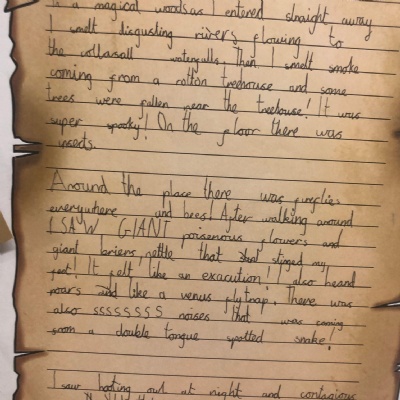 is a magical woods as I entered straight away
I smelt disgusting rivers flowing to
the collasall waterfalls. Then I smelt smoke
coming from a rotton treehouse and some
trees were fallen near the treehouse! It was
super spooky! On the floor there was
insects.
Around the place there was fireflies
everywhere and bees! After walking around
I SAW GIANT poisenous flowers and
giant briers, nettle that stinged my
feet! It felt like an exacution! I also heard
roars and like a venus flytrap. There was
also ssssssss noises that was coming
from a double tongue spotted snake!
I saw hooting owl at night and contagious